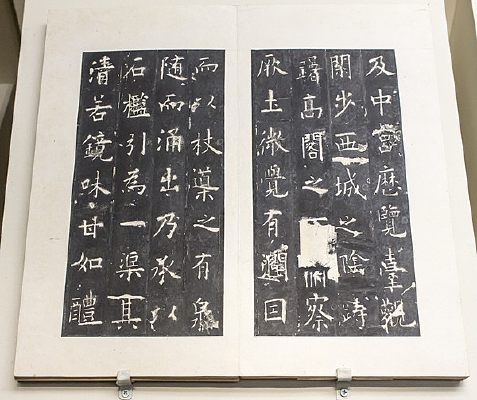 及中宮歷覽臺觀
閑步西城之陰躊
躇高閣之下俯察
厥土微覺有潤因
而以杖導之有泉
隨而涌出乃承以
石檻引為一渠其
清若鏡味甘如醴